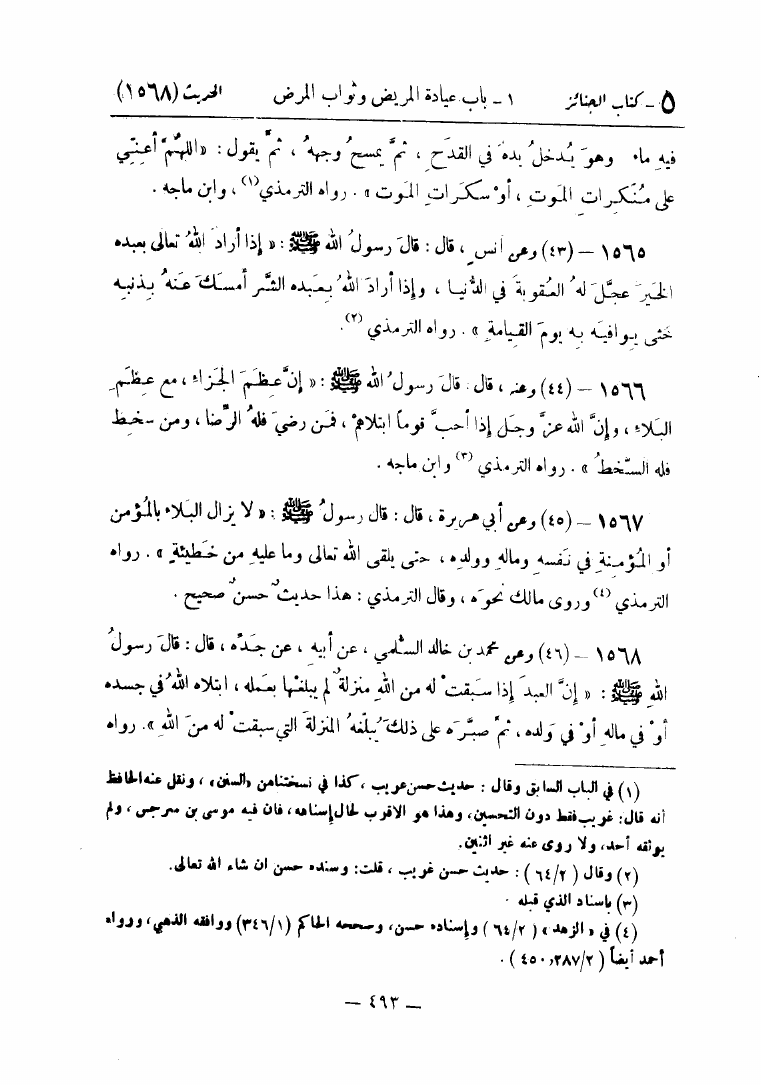 ٥ - كتاب الجنائز ١ - باب عيادة المريض وثواب المرض الحديث (١٥٦٨)
فيهِ ماء وهوَ يُدخلُ يدهُ في القدَحِ ، ثمَّ يمسحُ وجههُ ، ثمَّ يقول : « اللهُمَّ أعِنّي
على مُنكراتِ الموتِ ، أوْ سكَراتِ الموت » . رواه الترمذي(١) ، وابن ماجه .
١٥٦٥ - (٤٣) وعن أنسٍ ، قال : قالَ رسولُ الله ﷺ : « إذا أرادَ اللهُ تعالى بعبده
الخيرَ عجَّلَ لهُ العقوبةَ في الدُّنيا ، وإذا أرادَ اللهُ بعبده الشَّر أمسكَ عنهُ بذنبه
حتى يوافيَه به يومَ القيامةِ » . رواه الترمذي(٢).
١٥٦٦ - (٤٤) وعنه ، قال : قالَ رسولُ الله ﷺ : « إنَّ عِظمَ الجزاءِ ، مع عِظَمِ
البَلاءِ ، وإنَّ الله عزَّ وجلَ إذا أحبَّ قوماً ابتلاهمْ ، فمَن رضيَ فلهُ الرِّضا ، ومن سخِطَ
فله السَّخطُ » . رواه الترمذي(٣) وابن ماجه .
١٥٦٧ - (٤٥) وعن أبي هريرة ، قال : قال رسولُ ﷺ : « لا يزال البَلاء بالمُؤمن
أو المُؤمِنةِ في نَفسهِ ومالهِ وولدِه ، حتى يلقى الله تعالى وما عليهِ من خَطيئةٍ » . رواه
الترمذي(٤) وروى مالك نحوَه ، وقال الترمذي : هذا حديثٌ حسنٌ صحيح .
١٥٦٨ - (٤٦) وعن محمد بن خالد السُّلمي ، عن أبيهِ ، عن جَدِّه ، قال : قالَ رسولُ
اللهِ ﷺ : « إنَّ العبدَ إذا سَبقتْ له من اللهِ منزلةٌ لم يبلغْها بعمله ، ابتلاه اللهُ في جسده
أوْ في مالهِ أوْ في وَلده ، ثمَّ صبَّرَه على ذلكَ يُبلّغهُ المنزلةَ التي سبقتْ له منَ اللهِ ». رواه
(١) في الباب السابق وقال : حديث حسن غريب ، كذا في نسختنا من «السنن» ، ونقل عنه الحافظ
أنه قال: غريب فقط دون التحسين، وهذا هو الاقرب لحال إسناده، فان فيه موسى بن سرجس ، ولم
يوثقه أحد، ولا روى عنه غير اثنين.
(٢) وقال ( ٦٤/٢ ) : حديث حسن غريب ، قلت: وسنده حسن ان شاء الله تعالى.
(٣) بإسناد الذي قبله .
(٤) في « الزهد » ( ٦٤/٢ ) وإسناده حسن، وصححه الحاكم (٣٤٦/١) ووافقه الذهبي، ورواه
أحمد أيضاً ( ٤٥٠،٢٨٧/٢ ) .
- ٤٩٣ -